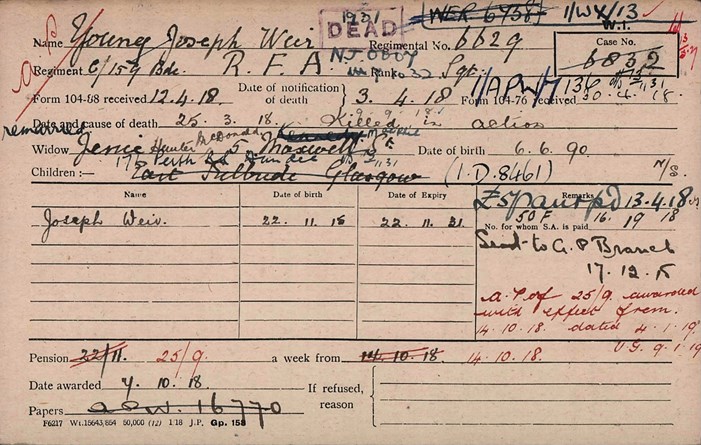 1931 WER 6938F 1/WX/13
DEAD W.I.
Name Young Joseph Weir Regimental No. 6629 Case No.
Regiment C/159 Bde. R. F. A Rank Sgt. 6832
Date of notification 1/APW/7136
Form 104-88 received 12.4.18. of death 3. 4.18. Form 104-76 received 30.4.18.
Date and cause of death 25.3.18. Killed in action
remarried
Widow Jessie Hunter McDonald 5 Maxwell Date of birth 6.6.90
Perth Rd Dundee
Children:— East Kilbride Glasgow (I.D.8461)
Name Date of birth Date of Expiry Remarks
£5 Paid 13.4.18
50 F 16. 19 18
Joseph Weir. 22. 11. 15 22. 11. 31. No. for whom S.A. is paid
Send to G.P Branch
17.12.
A.P. of 25/9 awarded
with effect from
14.10.18. dated 4.1.19
Pension 22/11. 25/9. a week from 14.10.18 14.10.18.
Date awarded 4.10.18. If refused,
reason
Papers APW. 16770
F6217 Wt.15643,854 50,000 (12) 1/18 J.P. Gp. 158